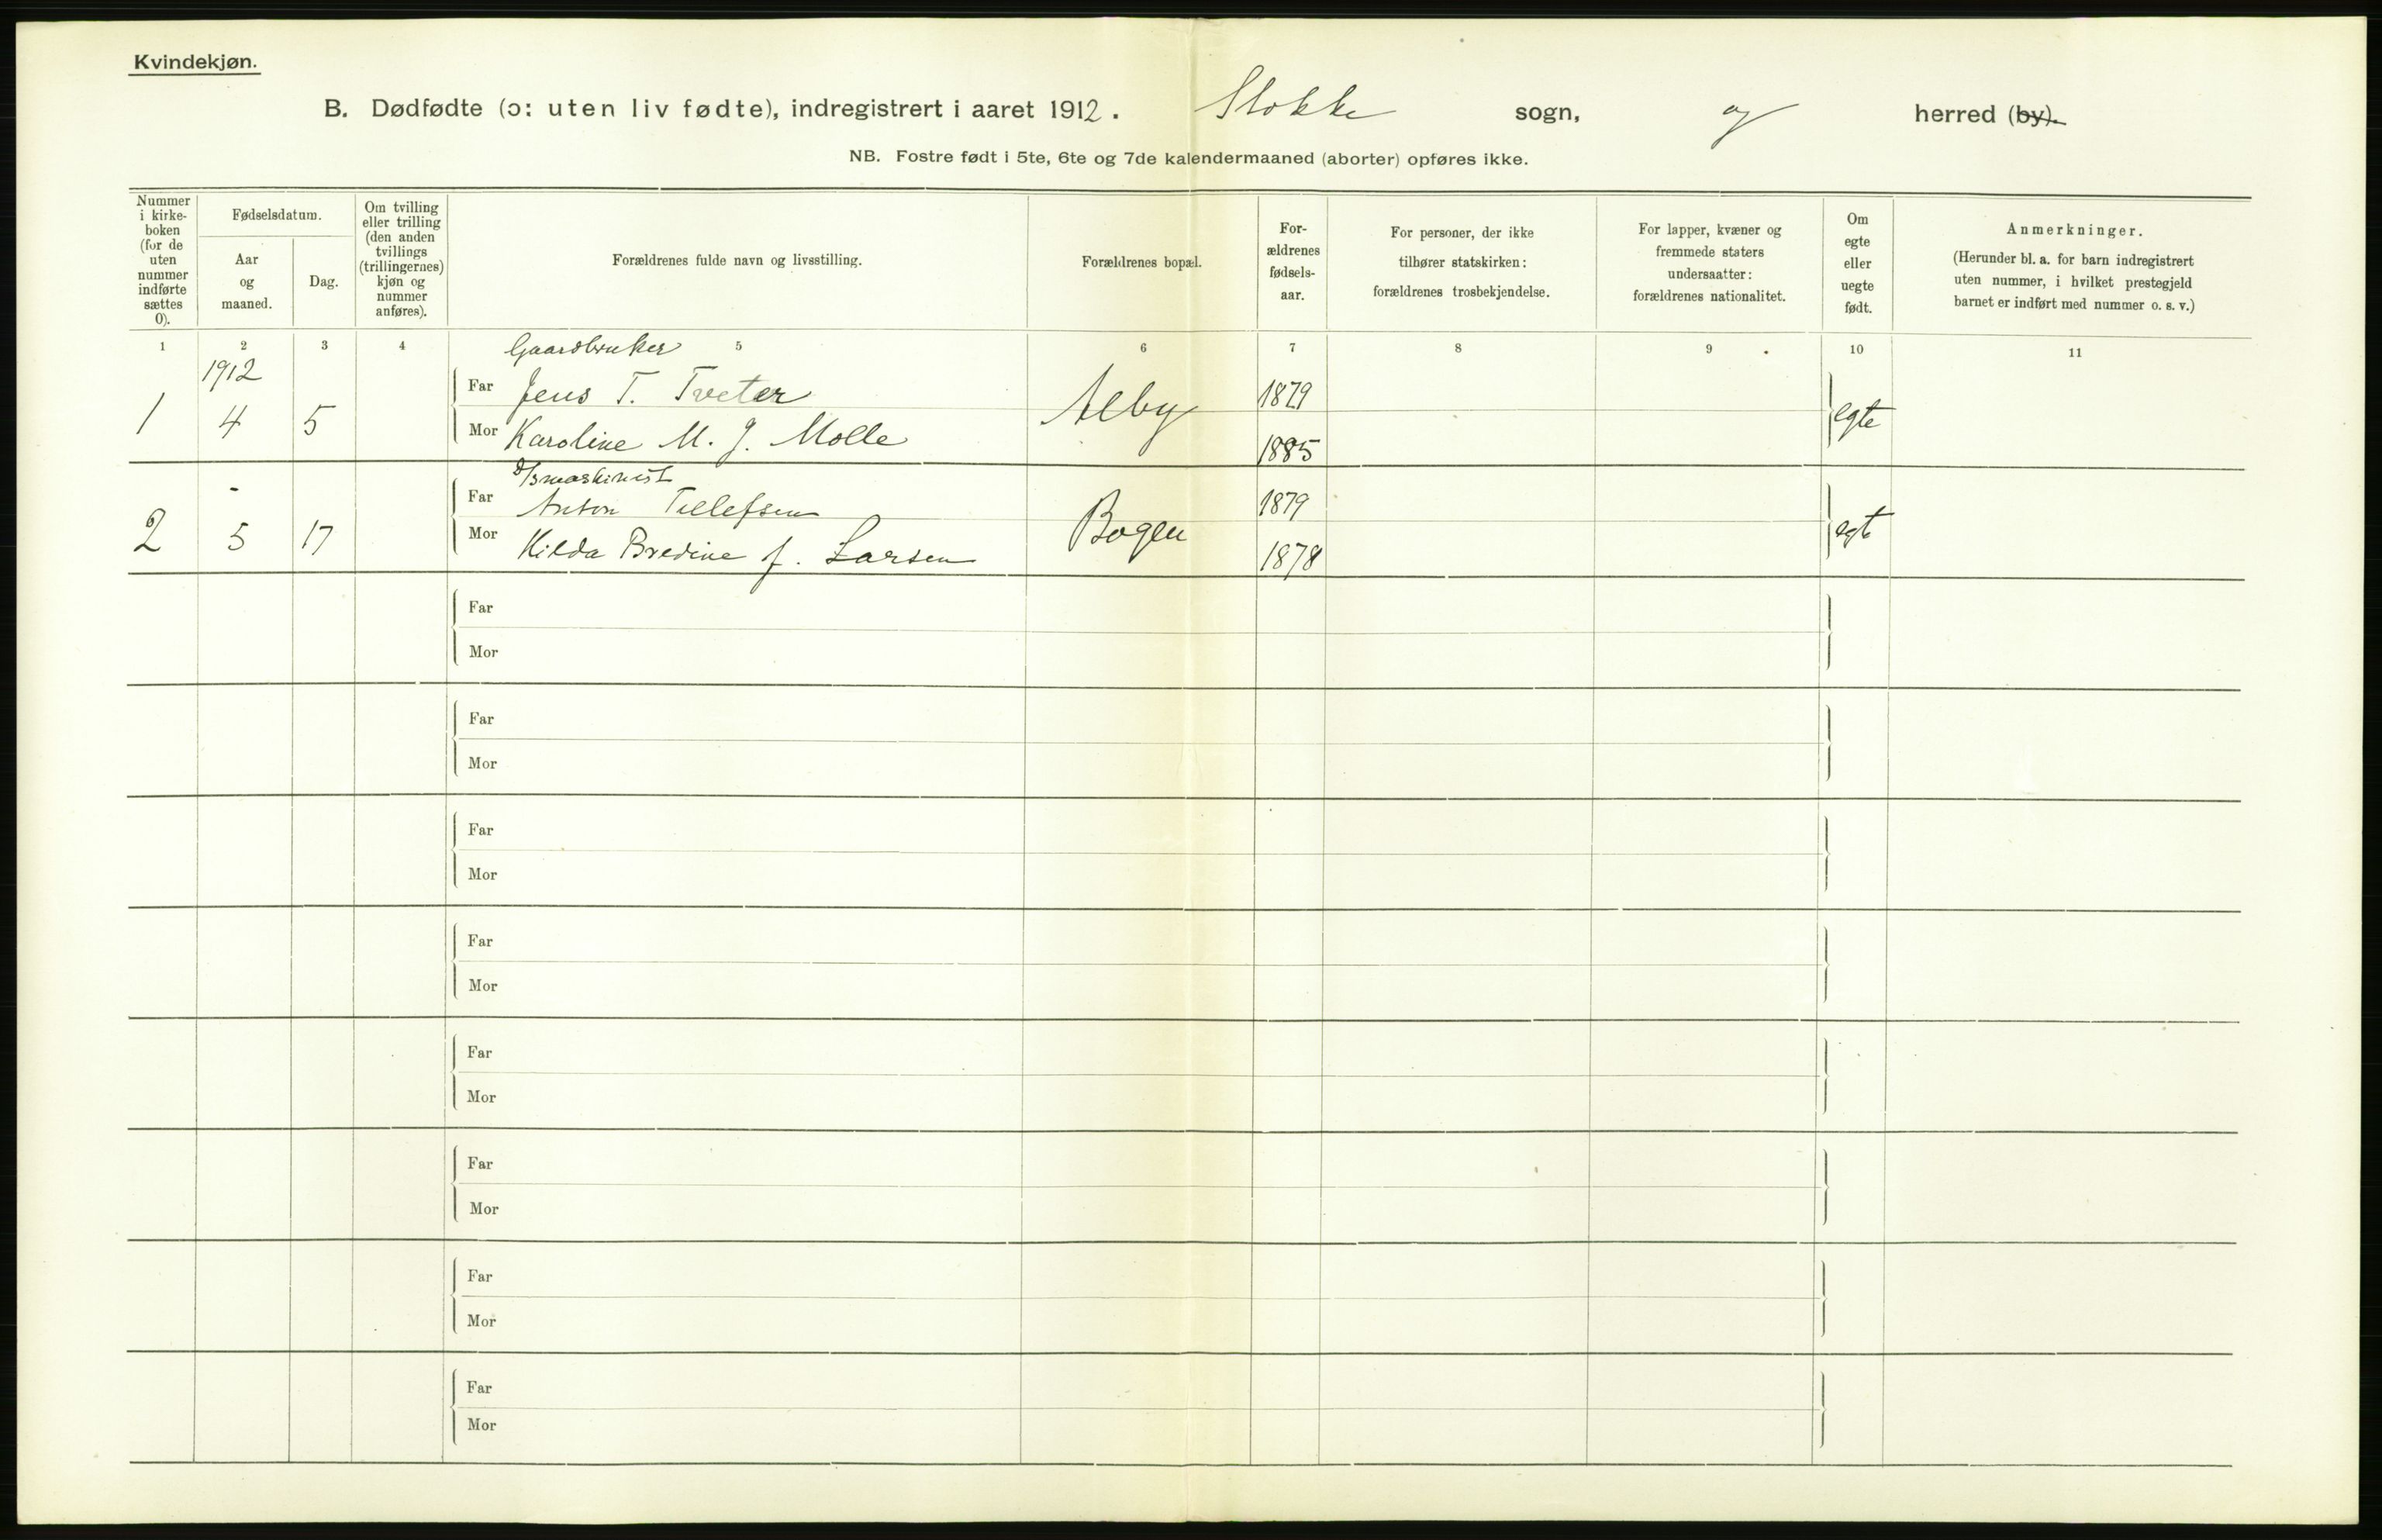 Kvindekjøn.
B. Dødfødte (ɔ: uten liv fødte), indregistrert i aaret 1912. Stokke sogn, og herred (by).
NB. Fostre født i 5te, 6te og 7de kalendermaaned (aborter) opføres ikke.
Nummer i kirke-boken (for de uten nummer indførte sættes 0).
Fødselsdatum.
Aar og maaned.
Dag.
Om tvilling eller trilling (den anden tvillings (trillingernes) kjøn og nummer anføres).
Forældrenes fulde navn og livsstilling.
Forældrenes bopæl.
For-ældrenes fødsels-aar.
For personer, der ikke tilhører statskirken: forældrenes trosbekjendelse.
For lapper, kvæner og fremmede staters undersaatter: forældrenes nationalitet.
Om egte eller uegte født.
Anmerkninger. (Herunder bl. a. for barn indregistrert uten nummer, i hvilket prestegjeld barnet er indført med nummer o. s. v.)
1 2 3 4 5 6 7 8 9 10 11
1912
Gaardbruker
Far Jens T. Tveter 1879
1 4 5 Alby egte
Mor Karoline M. J. Molle 1885
-
Far Anton Tellefsen 1879
2 5 17 Bogen egt
Mor Hilda Bredine f. Larsen 1878
Far
Mor
Far
Mor
Far
Mor
Far
Mor
Far
Mor
Far
Mor
Far
Mor
Far
Mor